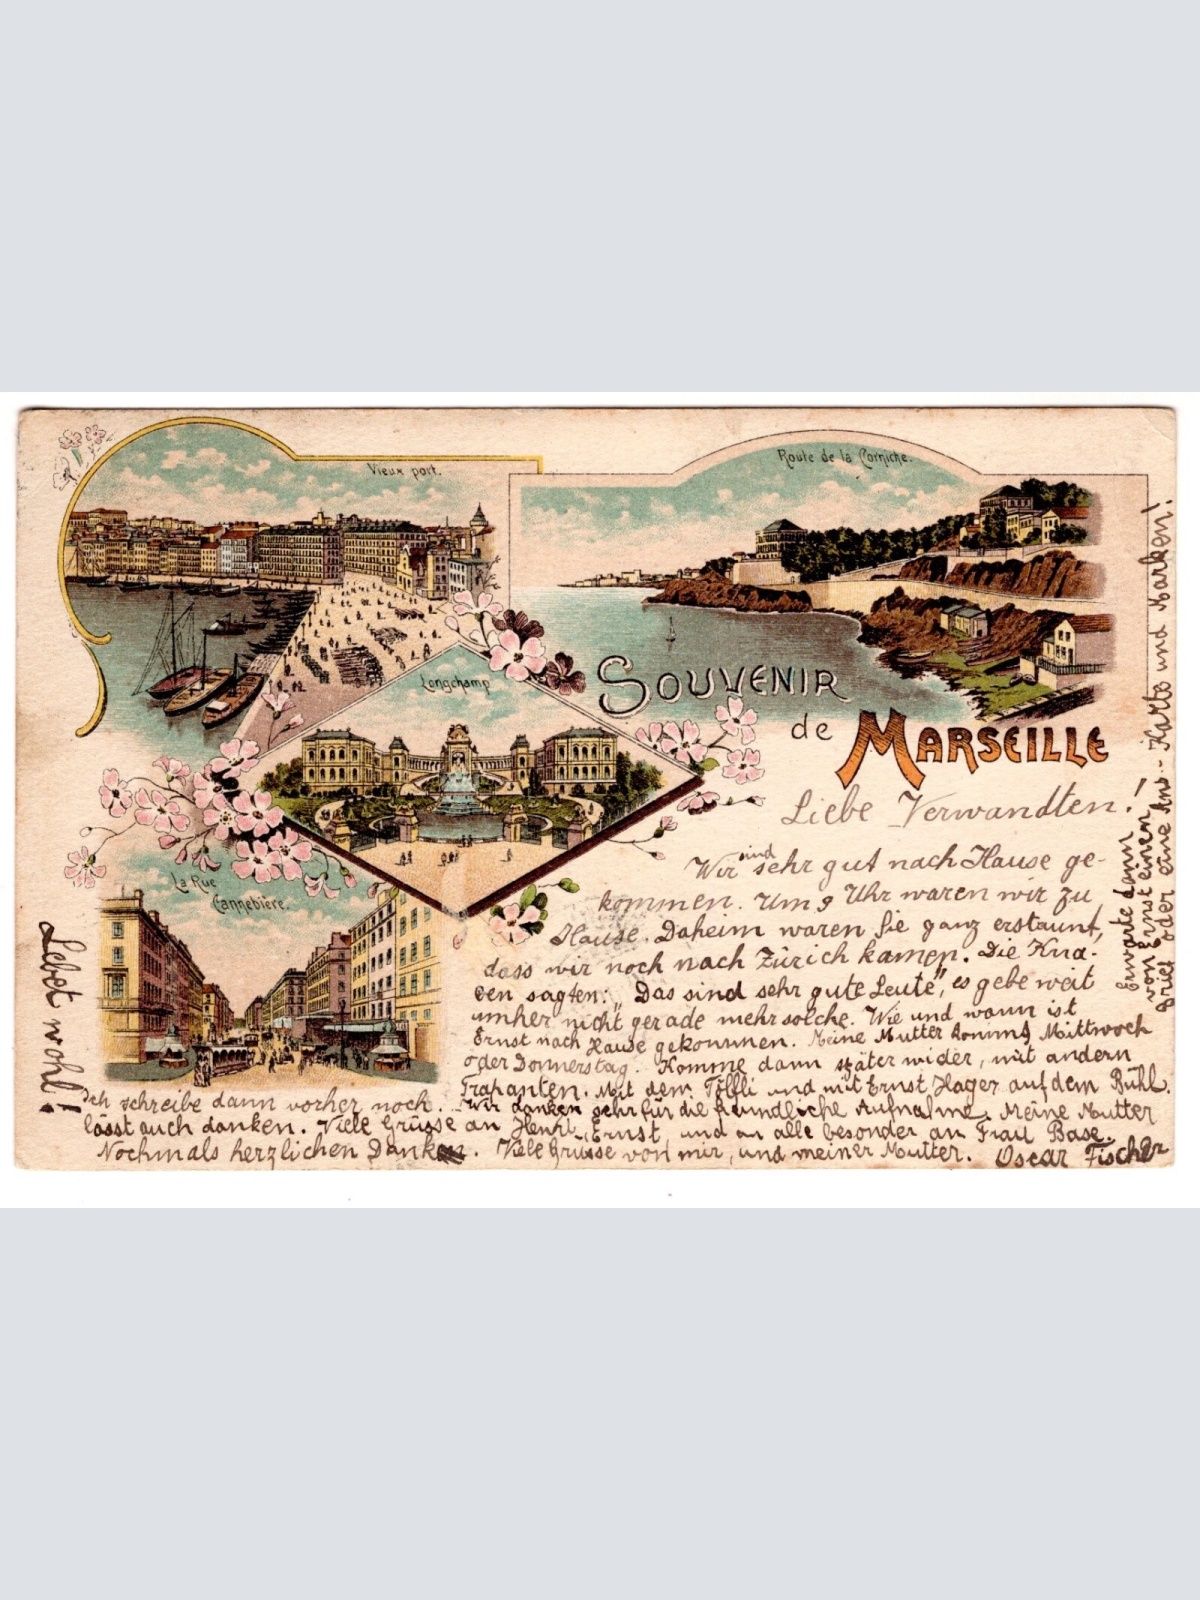 Vieux port.
Route de la Corniche.
Longchamp
La Rue
Cannebière.
SOUVENIR
de MARSEILLE
Liebe Verwandten!
Wir sind sehr gut nach Hause ge-
kommen. Um 9 Uhr waren wir zu
Hause. Daheim waren Sie ganz erstaunt,
dass wir noch nach Zürich kamen. Die Kna-
ben sagten: „Das sind sehr gute Leute", es gebe weit
umher nicht gerade mehr solche. Wie und wann ist
Ernst nach Hause gekommen. Meine Mutter kommt Mittwoch
oder Donnerstag. Komme dann später wider, mit andern
Trapanten. Mit dem Töffli und mit Ernst Hager auf dem Bühl.
Ich schreibe dann vorher noch. Wir danken sehr für die freundliche Aufnahme. Meine Mutter
lässt auch danken. Viele Grüsse an Henri, Ernst, und an alle besonder an Frau Base.
Nochmals herzlichen Danken. Viele Grüsse von mir, und meiner Mutter. Oscar Fischer
Lebet wohl!
Erwarte dann
von Ernst einen
Brief oder eine An-Karte und Marken!